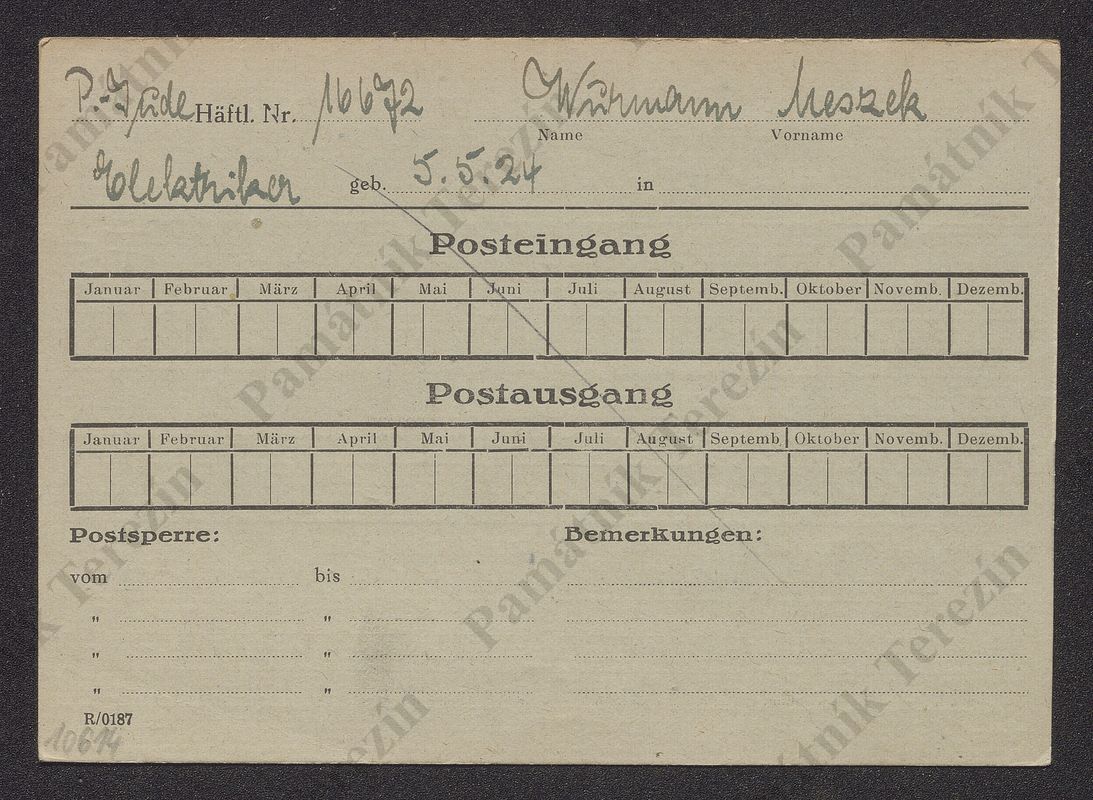 P.-Jude Häftl. Nr. 16672 Wurmann Meszek
Name Vorname
Elektriker geb. 5.5.24 in
Posteingang
Januar Februar März April Mai Juni Juli August Septemb. Oktober Novemb. Dezemb.
Postausgang
Januar Februar März April Mai Juni Juli August Septemb. Oktober Novemb. Dezemb.
Postsperre: Bemerkungen:
vom bis
" "
" "
" "
R/0187
10614
Památník Terezín